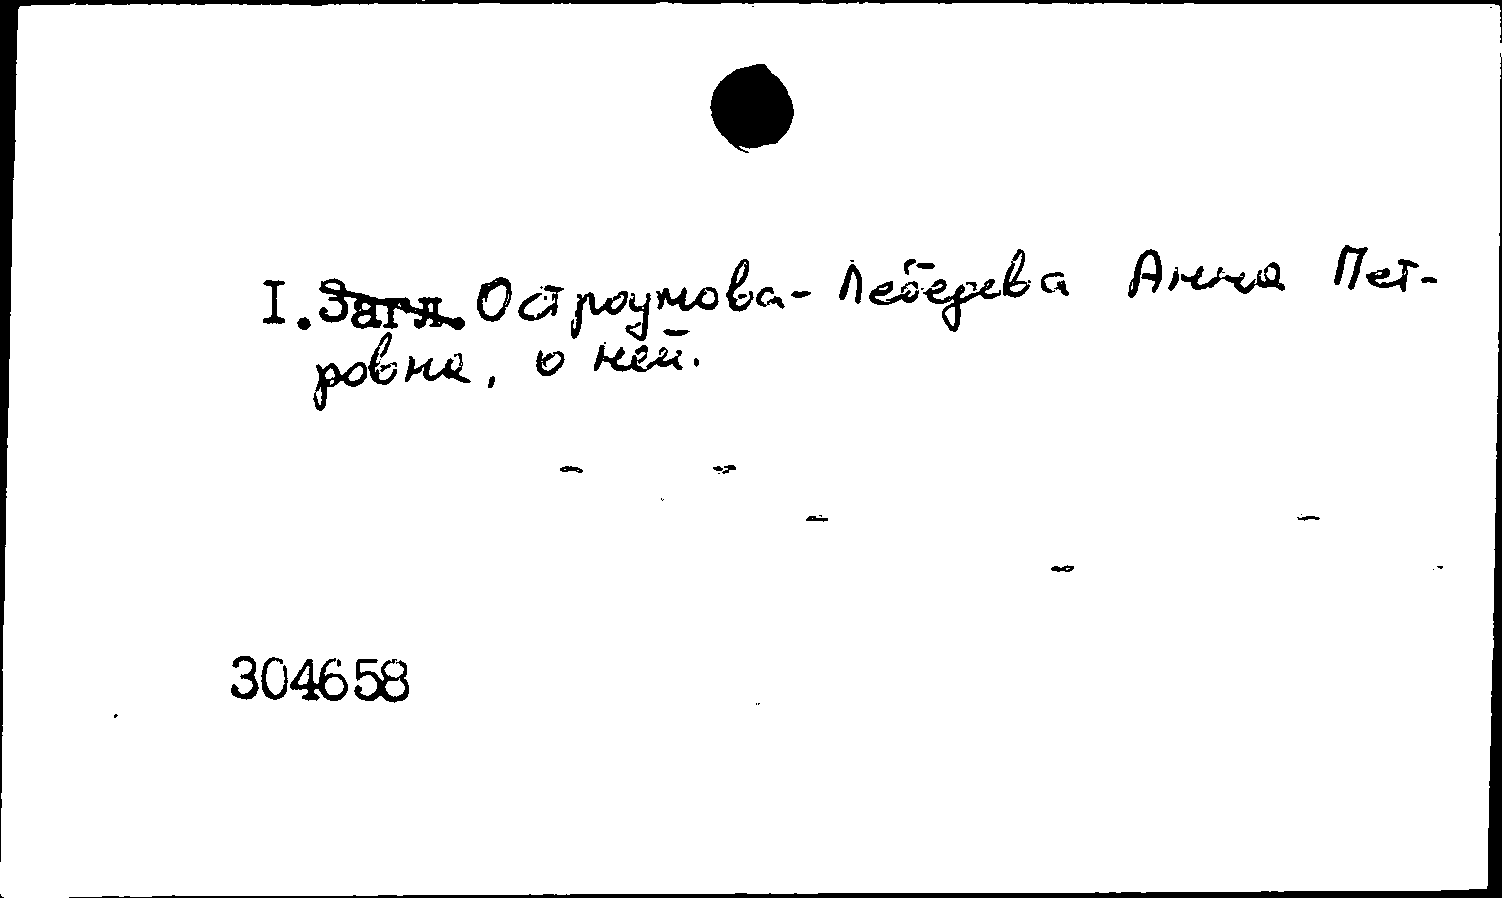 I. Загл. Остроумова- Лебедева Анна Пет-
ровна, о ней.
304658